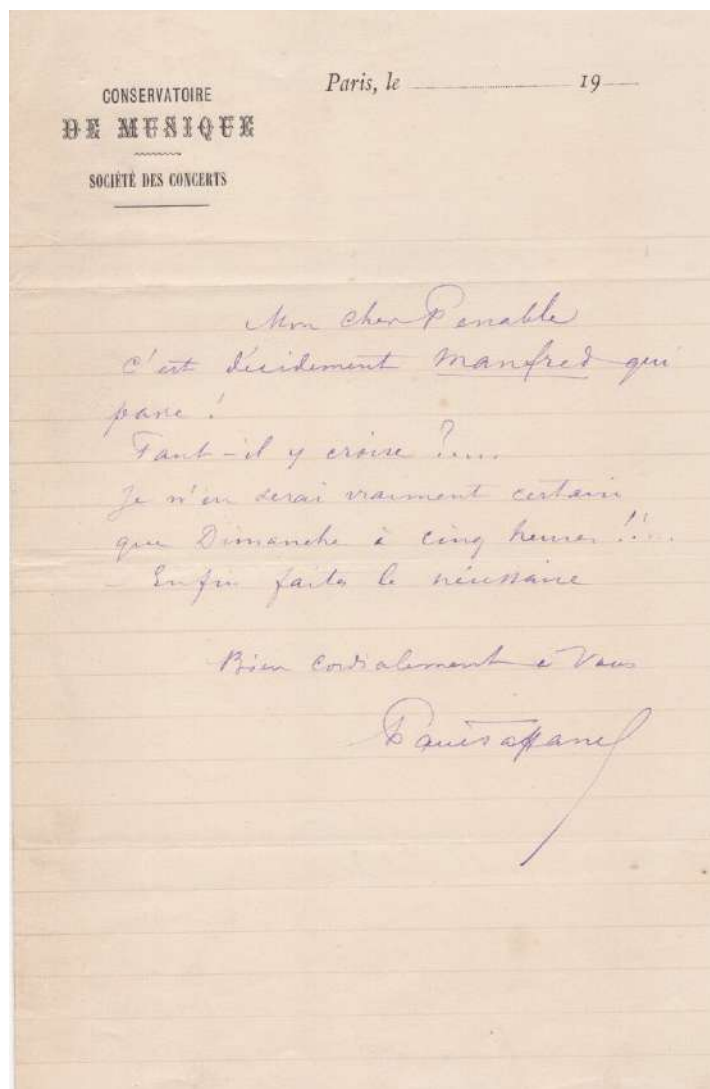 CONSERVATOIRE
DE MUSIQUE
SOCIÉTÉ DES CONCERTS
Paris, le 19
Mon cher Penable
c'est décidément Manfred qui
passe !
Faut-il y croire ?...
Je n'en serai vraiment certain
que Dimanche à cinq heures !!...
Enfin faites le nécessaire
Bien cordialement à vous
Paul Taffanel